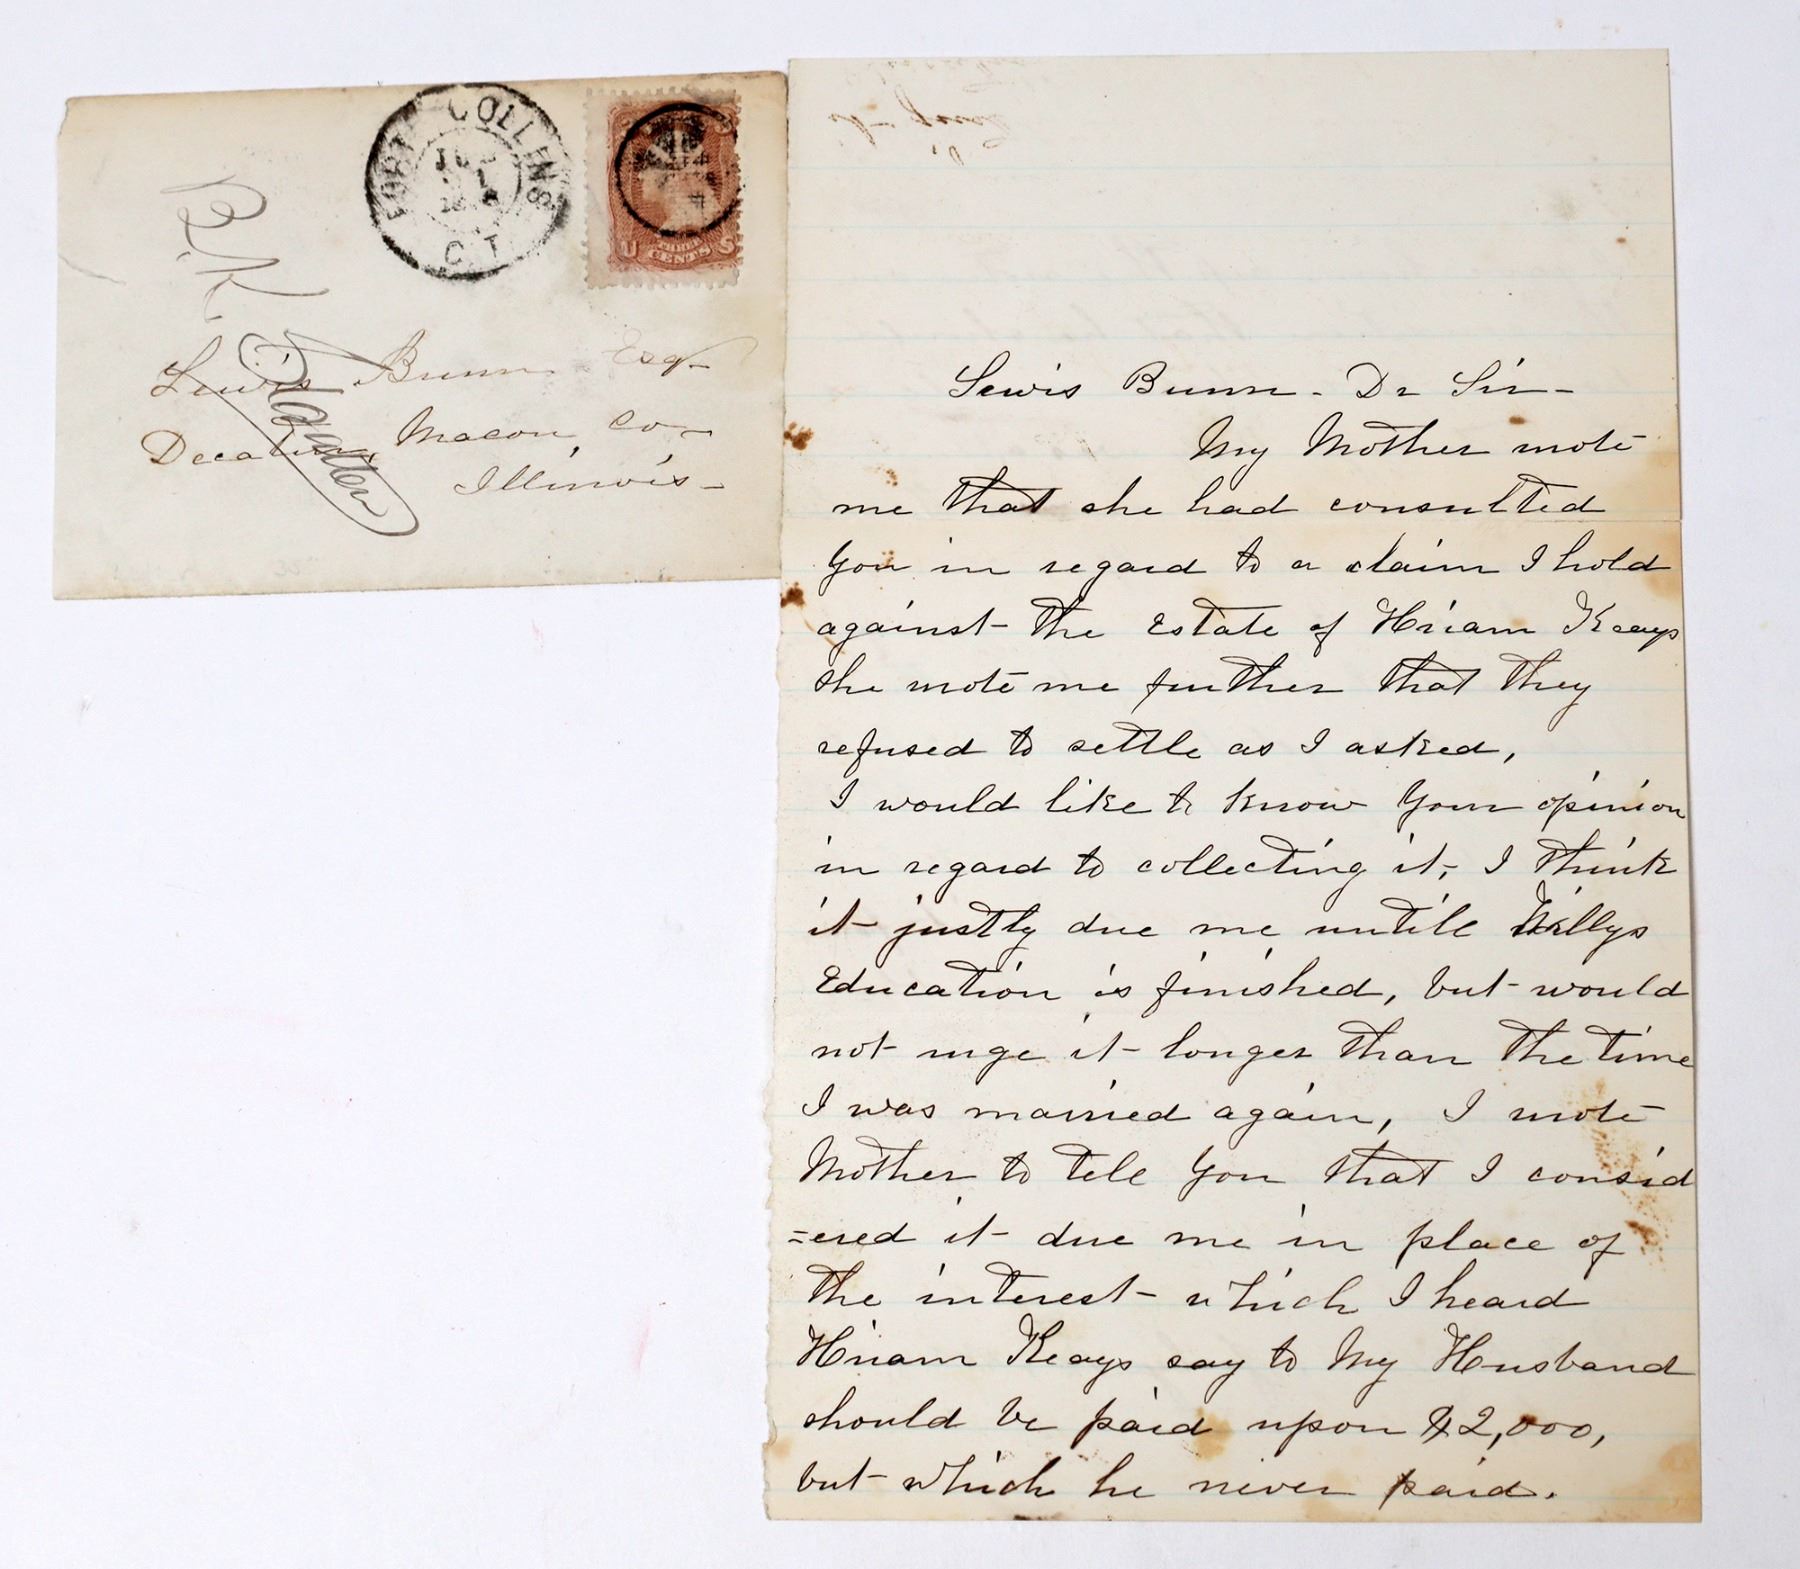 FORT COLLINS
C.T.
U S
THREE
CENTS
B.K.
Lewis Bunn Esq-
Decatur, Macon, Co-
Illinois-
Lewis Bunn - Dr Sir-
My Mother wrote
me that she had consulted
You in regard to a claim I hold
against the Estate of Hiram Keays
she wrote me further that they
refused to settle as I asked,
I would like to know Your opinion
in regard to collecting it, I think
it justly due me untill Willys
Education is finished, but would
not urge it longer than the time
I was married again, I wrote
Mother to tell You that I consid
=ered it due me in place of
the interest which I heard
Hiram Keays say to My Husband
should be paid upon $2,000,
but which he never paid.